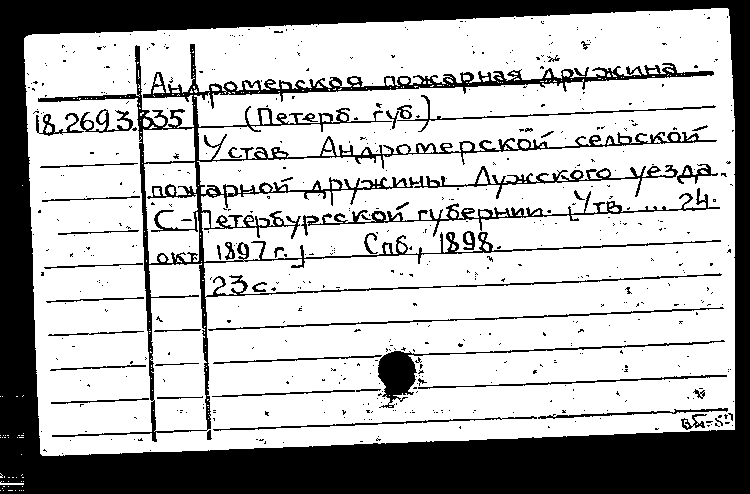 Андромерская пожарная дружина.
18.269.3.635 (Петерб. губ.).
Устав Андромерской сельской
пожарной дружины Лужского уезда
С.-Петербургской губернии. [Утв. ... 24.
окт. 1897 г.] Спб., 1898.
23 с.